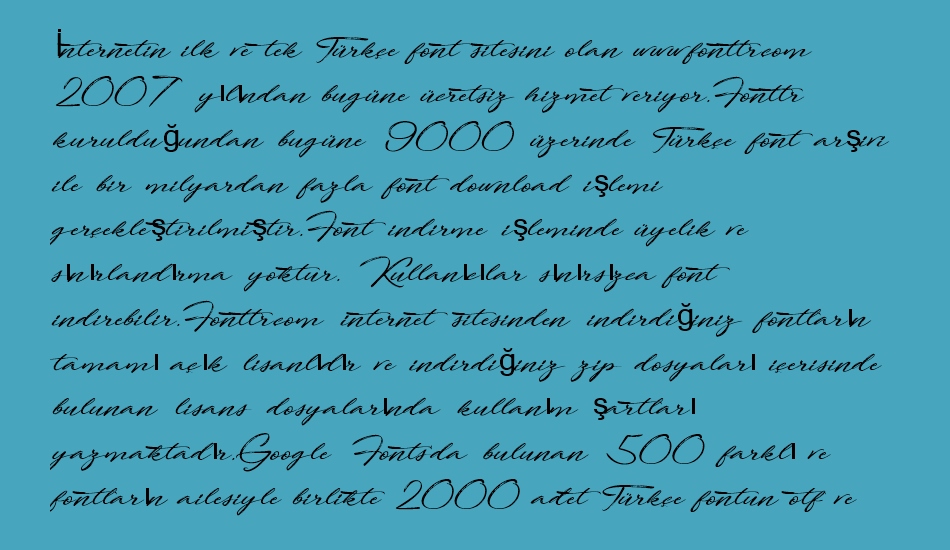 İnternetin ilk ve tek Türkçe font sitesini olan www.fonttr.com
2007 yılından bugüne ücretsiz hizmet veriyor.Fonttr
kurulduğundan bugüne 9000 üzerinde Türkçe font arşivi
ile bir milyardan fazla font download işlemi
gerçekleştirilmiştir.Font indirme işleminde üyelik ve
sınırlandırma yoktur. Kullanıcılar sınırsızca font
indirebilir.Fonttr.com internet sitesinden indirdiğiniz fontların
tamamı açık lisanlıdır ve indirdiğiniz zip dosyaları içerisinde
bulunan lisans dosyalarında kullanım şartları
yazmaktadır.Google Fonts'da bulunan 500 farklı ve
fontların ailesiyle birlikte 2000 adet Türkçe fontun otf ve